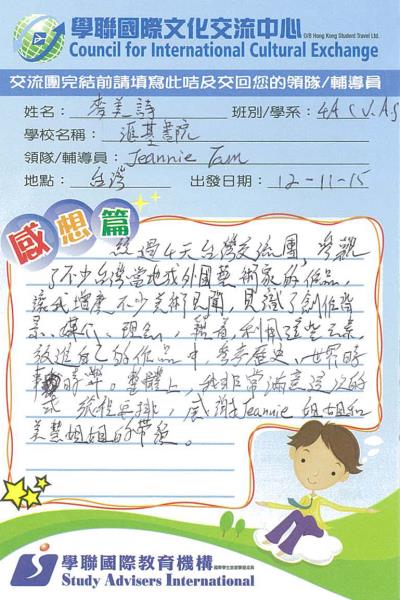 學聯國際文化交流中心 O/B Hong Kong Student Travel Ltd.
Council for International Cultural Exchange
交流團完結前請填寫此咭及交回您的領隊/輔導員
姓名: 李美詩 班別/學系: 4A (V.A)
學校名稱: 滙基書院
領隊/輔導員: Jeannie Tam
地點: 台灣 出發日期: 12-11-15
感想篇
經過4天台灣交流團,參觀
了不少台灣當地或外國藝術家的作品,
讓我增廣不少美術見聞,見識了創作背
景、媒介、理念,藉着利用這些元素
放進自己的作品中,參考歷史、世界時
時弊。整體上,我非常滿意這次的
行程安排,感謝Jeannie姐姐和
美慧姐姐的帶領。
學聯國際教育機構
Study Advisers International